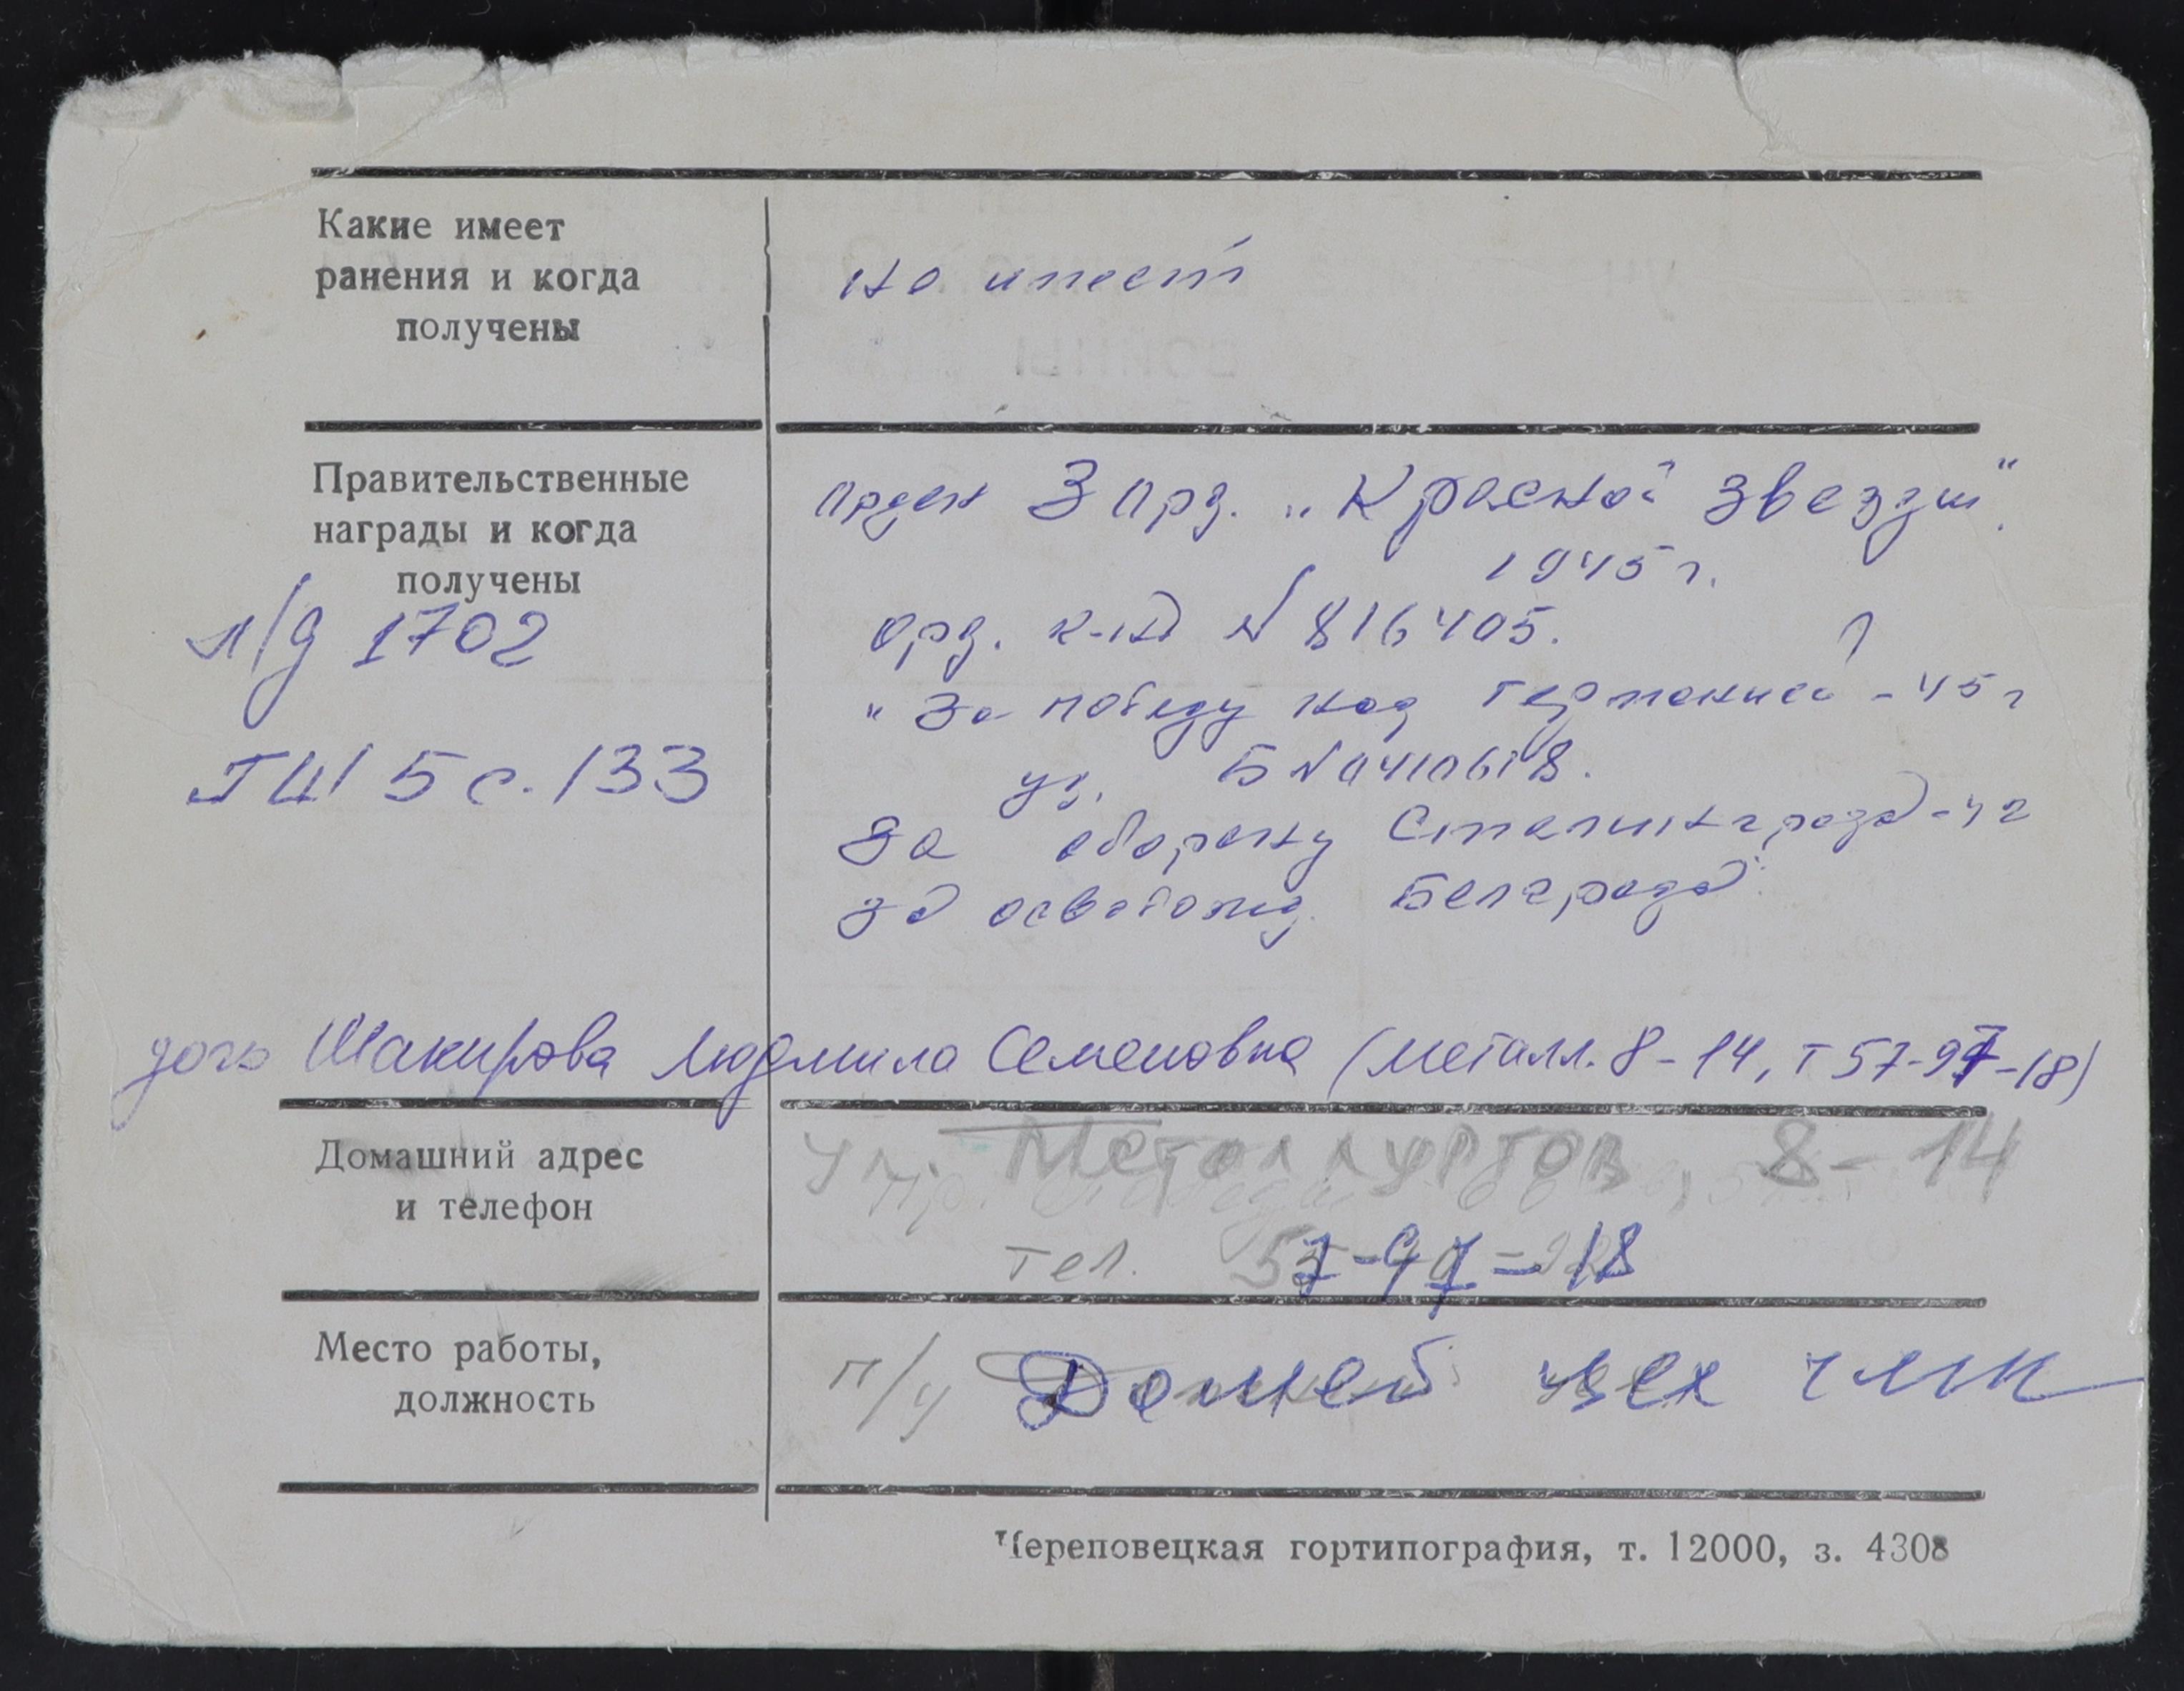 Какие имеет
ранения и когда
получены
не имеет
Правительственные
награды и когда
получены
л/д 1702
ТШ 5 с. 133
Орден 3 Орд. „Красной Звезды“.
1945 г.
Орд. к-ка № 816405.
„За победу над Германией - 45 г
уд. Б № 0410618.
За оборону Сталинграда - 42
за освобожд. Белграда
дочь Шакирова Людмила Семеновна (Металл. 8 - 14, т 57-97-18)
Домашний адрес
и телефон
ул. Металлургов, 8 - 14
тел. 57-97-18
Место работы,
должность
п/у Домен цех ЧМК
Череповецкая гортипография, т. 12000, з. 4308